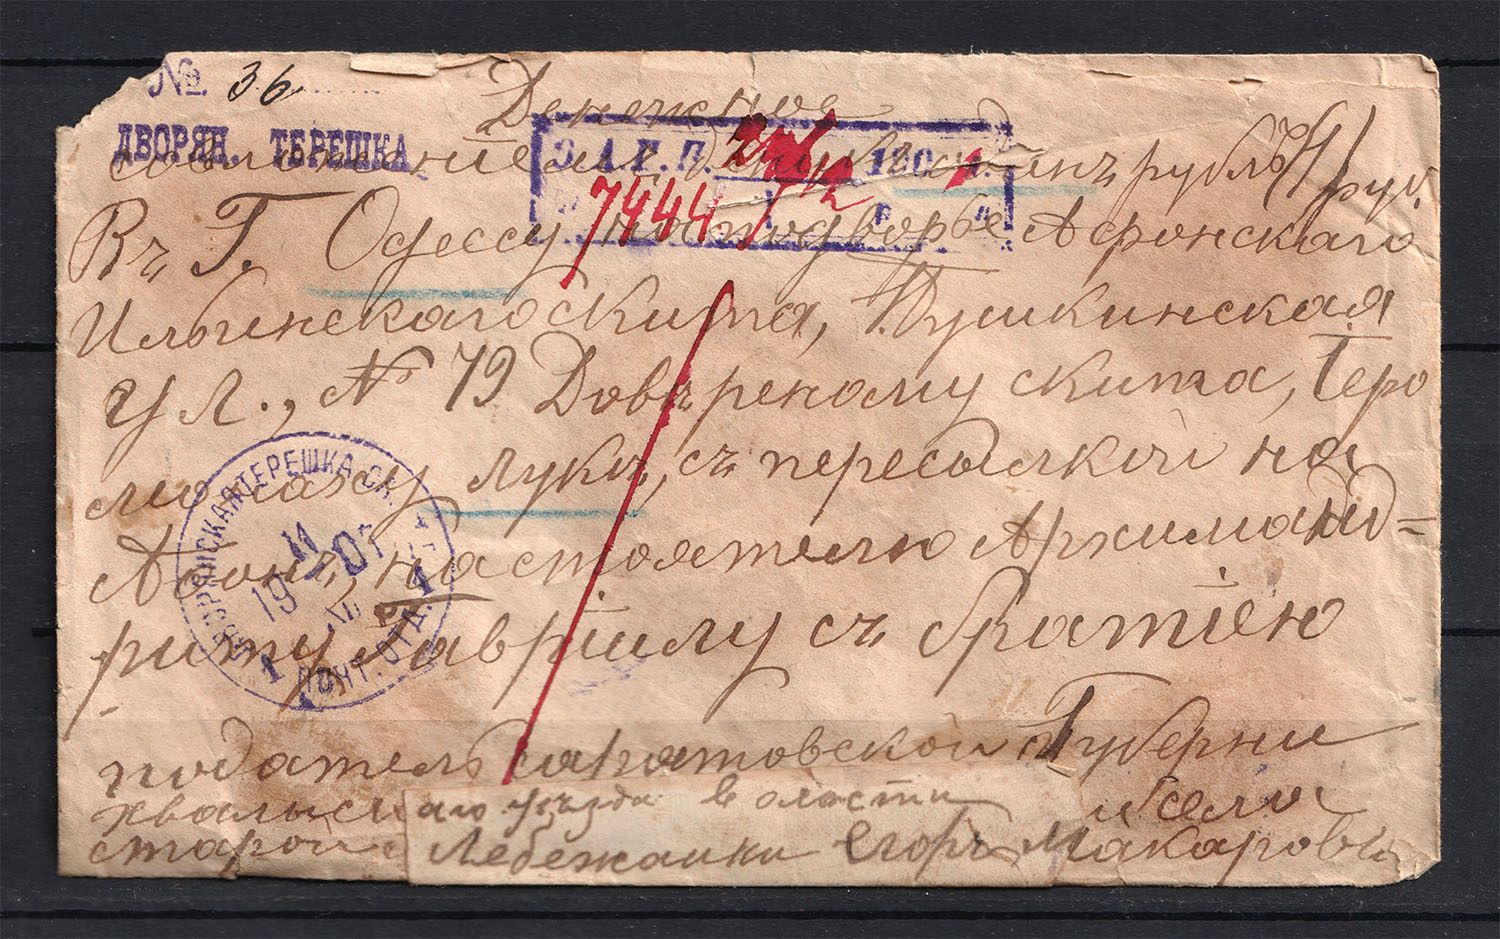 № 36
Денежное
ДВОРЯН. ТЕРЕШКА
З.А.П.П. 190
7444 1/2
одинъ рубль (1) руб.
Въ Г. Одессу на подворье Афонскаго
Ильинскаго скита, Пушкинская
Ул., № 79 Довъреному скита, Іеро
монаху Луки, съ пересылкой на
Афонъ, настоятелю Архиманд=
риту Гавріилу съ братіею
ДВОРЯНСКАЯ ТЕРЕШКА
11
19 01
ПОЧТ. ОТД.
1 1
податель саратовской Губерни
хвалынскаго уъзда волости и села
старой Лебежайки Егоръ Макаровъ